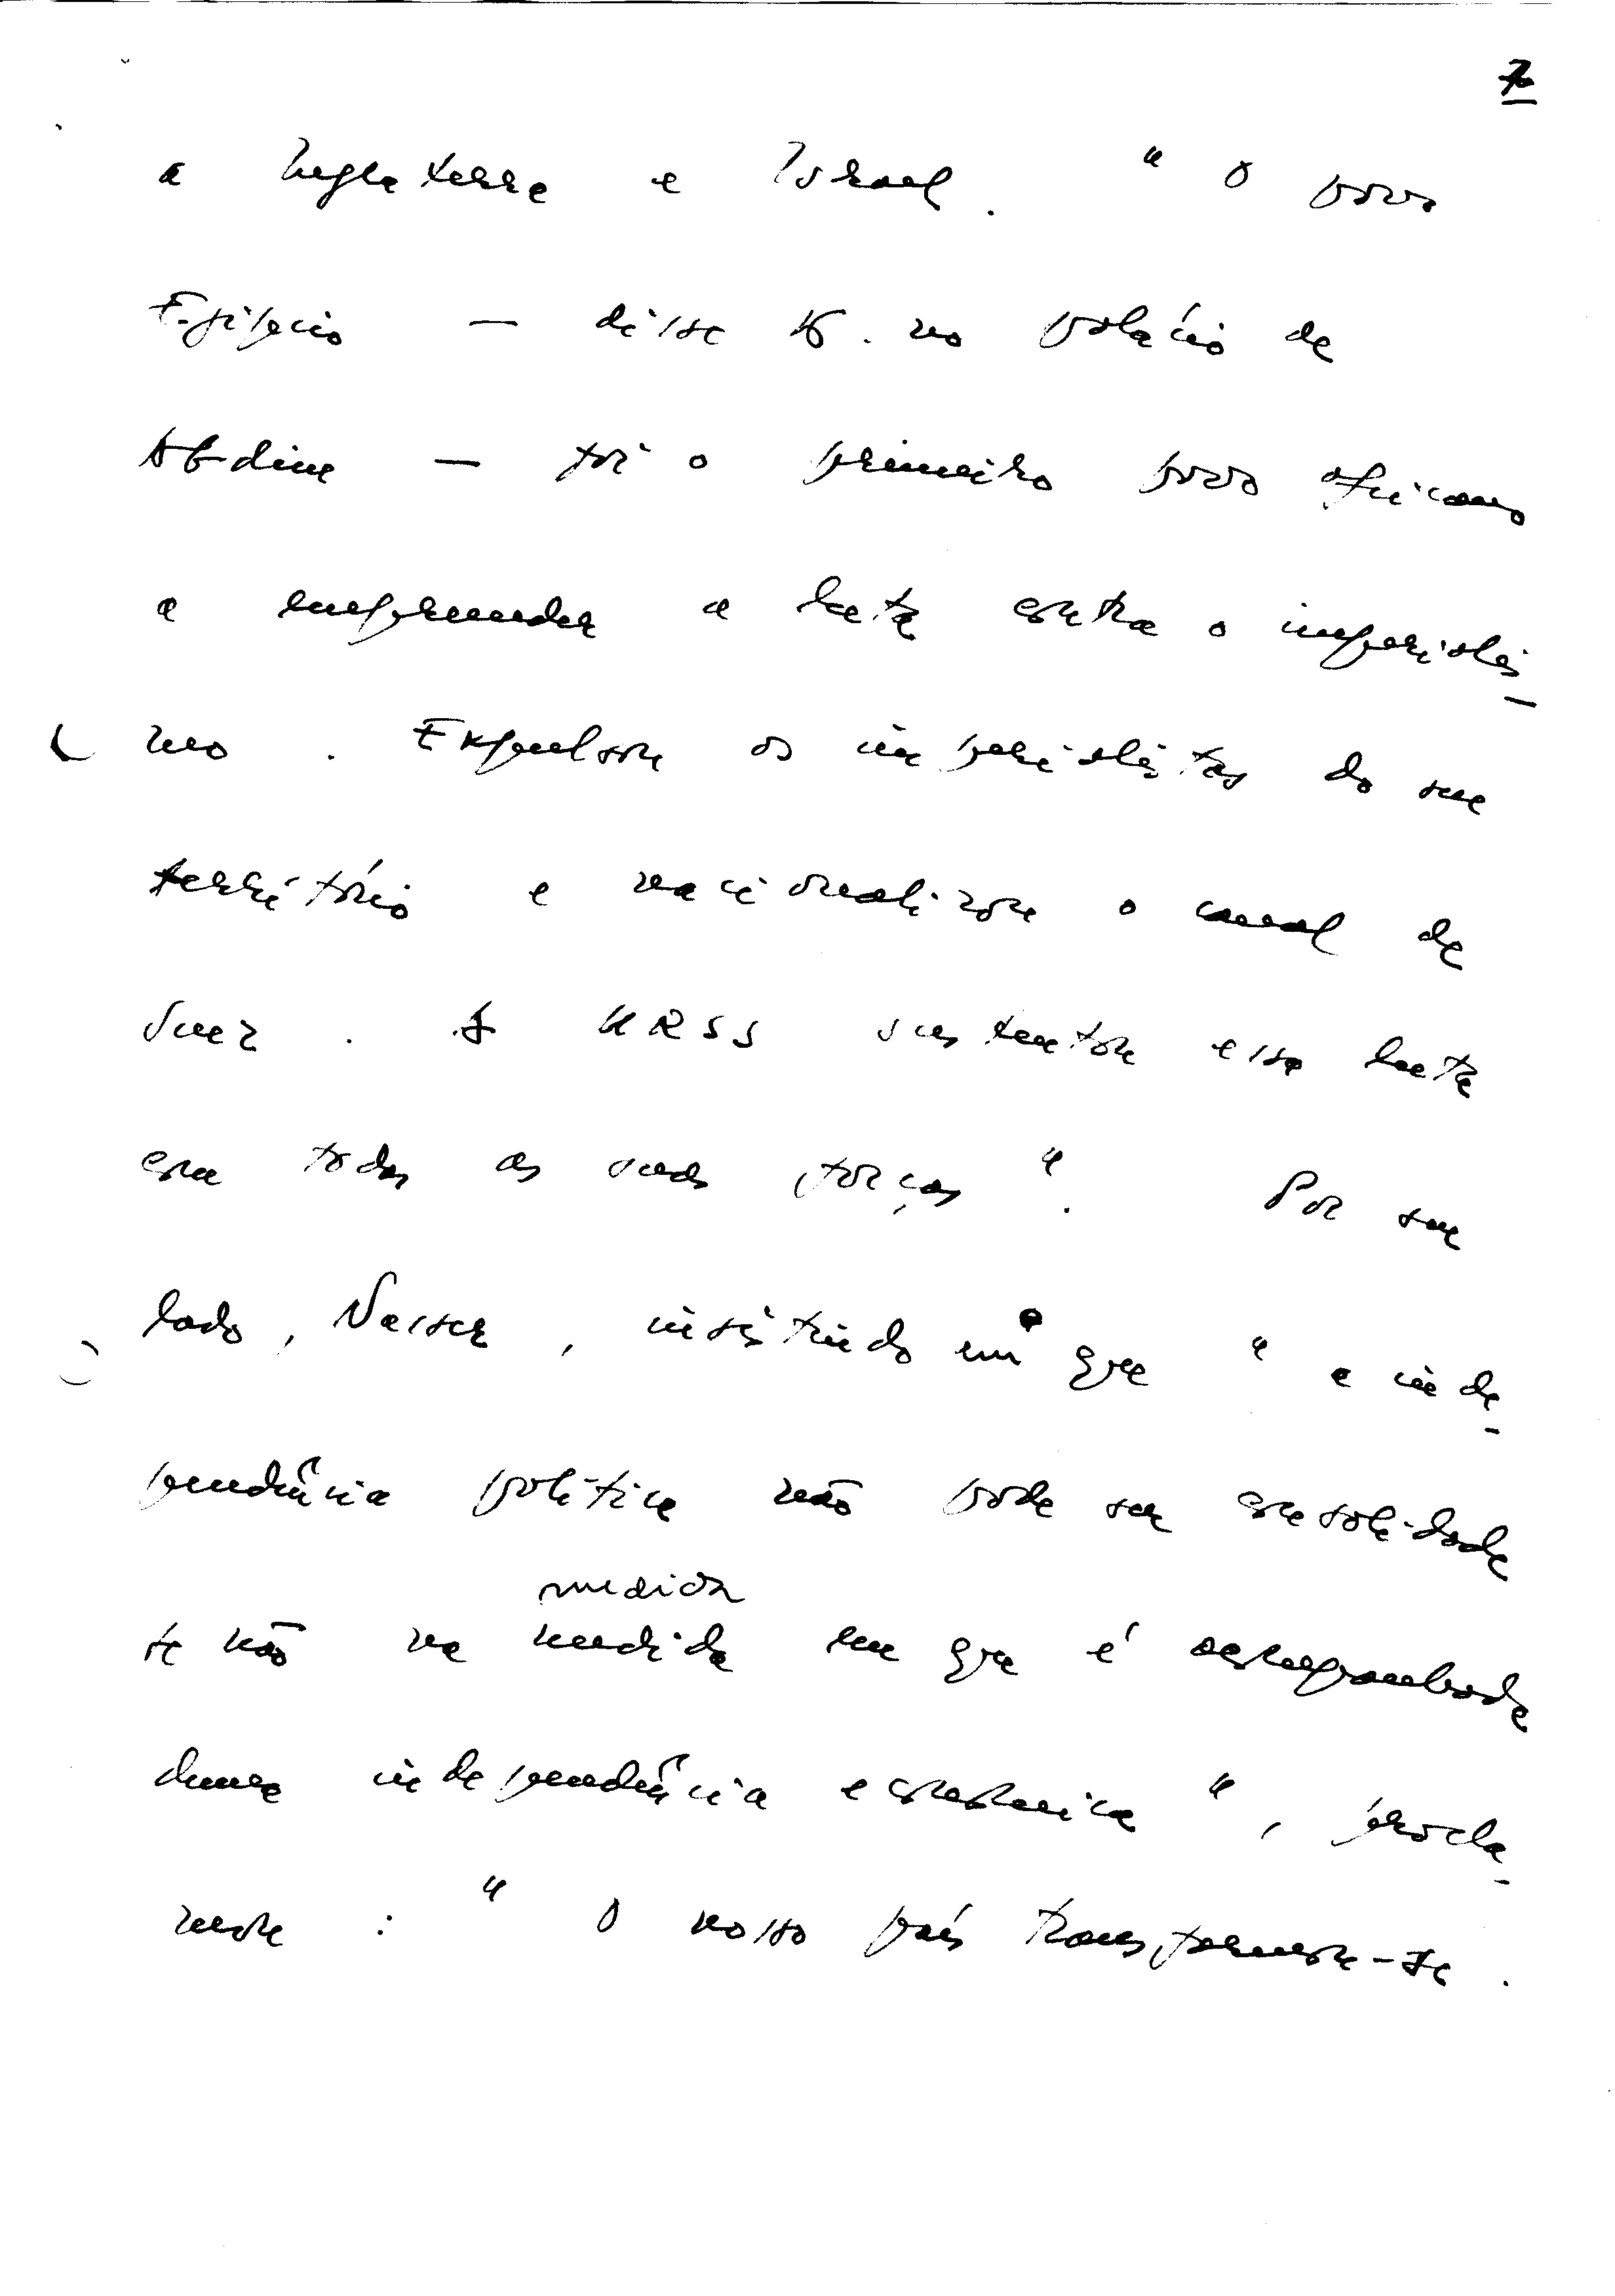 7
a Inglaterra e Israel. "O povo
Egípcio — disse K. no palácio de
Abdine — foi o primeiro povo africano
a empreender a luta contra o imperialis-
mo. Expulsou os imperialistas do seu
território e nacionalizou o canal de
Suez. A URSS sustentou essa luta
com todas as suas forças". Por seu
lado, Nasser, insistindo em que "a inde-
pendência política não pode ser consolidada
medida
se não na medida em que é acompanhada
duma independência económica", procla-
mou: "O nosso país transformou-se.